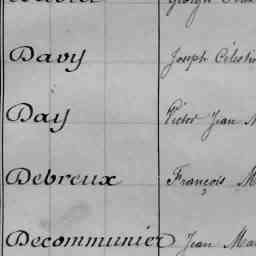 Davy Joseph Célestin
Day Victor Jean
Debreux François M
Decommunier Jean Mar